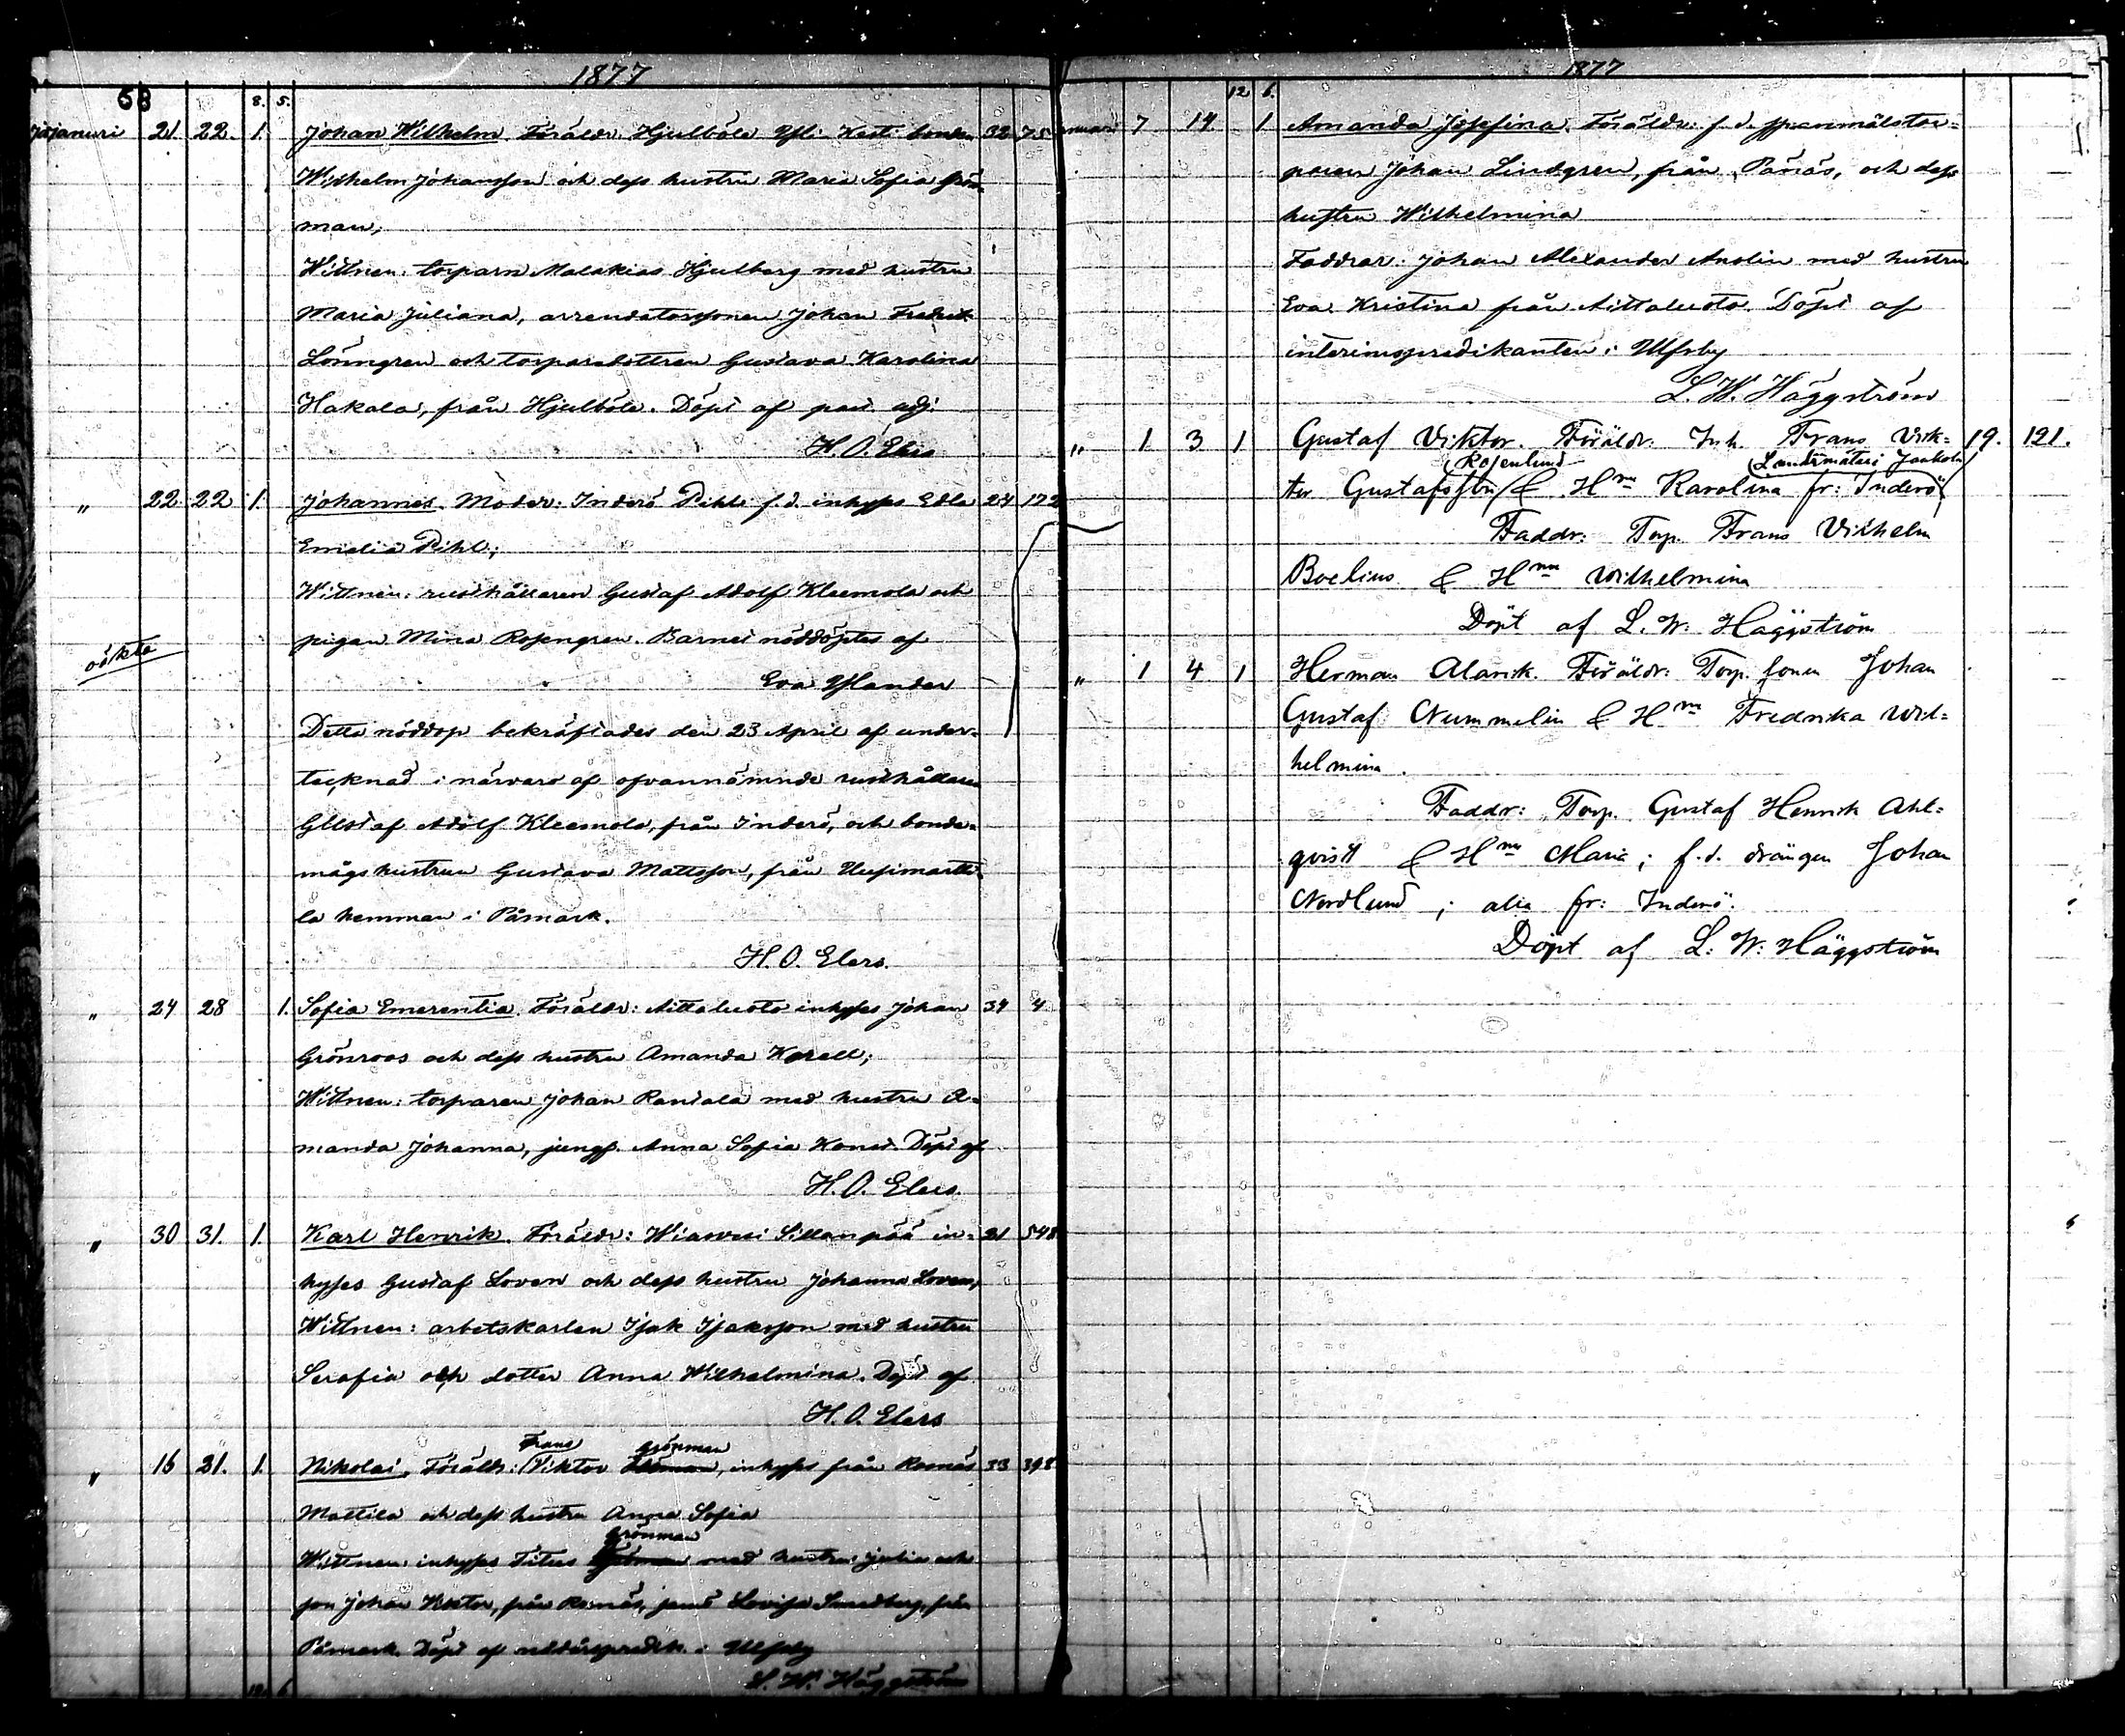 1877
58
8. 5.
januari 21. 22. 1. Johan Wilhelm. Föräldr. Hjulböle Yli Kesti bonden 32 75
Wilhelm Johansson och dess hustru Maria Sofia Grön-
man;
Wittnen: torparn Malakias Hjulberg med hustru
Maria Juliana, arrendatorssonen Johan Fredrik
Lönngren och torparedottren Gustava Karolina
Hakala, från Hjulböle. Döpt af past. adj.
H. O. Elers
" 22. 22 1. Johannes. Moder: Inderö Pihls f.d. inhyses Edla 24 172
Emelia Pihl;
Wittnen: rusthållaren Gustaf Adolf Kleemola och
pigan Mina Rosengren. Barnet nöddöptes af
oäkta
Eva Ylander
Detta nöddop bekräftades den 23 April af under-
tecknad i närvaro af ofvannämnde rusthållaren
Gustaf Adolf Kleemola, från Inderö, och bonde-
mågshustrun Gustava Mattsson, från Uusimartti-
la hemman i Påmark.
H. O. Elers.
" 24 28 1. Sofia Emerentia. Föräldr: Aittaluoto inhyses Johan 34 4
Grönroos och dess hustru Amanda Korell;
Wittnen: torparen Johan Rantala med hustru A-
manda Johanna, jungf. Anna Sofia Döpt af
H. O. Elers.
" 30 31. 1. Karl Henrik. Föräldr: Wiasvesi Sillanpää in- 21 548
hyses Gustaf Loven och dess hustru Johanna Loven,
Wittnen: arbetskarlen Isak Isaksson med hustru
Serafia och dotter Anna Wilhelmina. Döpt af
H. O. Elers
Frans Grönman
" 16 21. 1. Nikolai, Föräldr: Viktor inhyses från Rosnäs 33 398
Mattila och dess hustru Anna Sofia
Grönman
Wittnen: inhyses Titus med hustru Julia och
son Johan Viktor, från Rosnäs, samt Lovisa Sundberg, från
Påmark. Döpt af i Ulfsby
L. W. Häggström
1877
12 6.
januari 7 14 1 Amanda Josefina. Föräldr: f.d. spannmålstor-
paren Johan Lindgren, från Pånäs, och dess
hustru Wilhelmina
Faddrar: Johan Alexander Anolin med hustru
Eva Kristina från Aittaluoto. Döpt af
interimspredikanten i Ulfsby
L. W. Häggström
" 1 3 1 Gustaf Viktor. Föräldr: Inh. Frans Vik- 19. 121.
Rosenlund Landtmäteri Jaakola
tor Gustafsson & Hnn Karolina fr: Inderö
Faddr: Torp. Frans Vilhelm
Boelius & Hnn Wilhelmina
Döpt af L. W. Häggström
" 1 4 1 Herman Alarik. Föräldr: Torp. sonen Johan
Gustaf Nummelin & Hnn Fredrika Wil-
helmina.
Faddr: Torp. Gustaf Henrik Ahl-
qvist & Hnn Maria; f.d. drängen Johan
Nordlund; alla fr: Inderö.
Döpt af L. W. Häggström